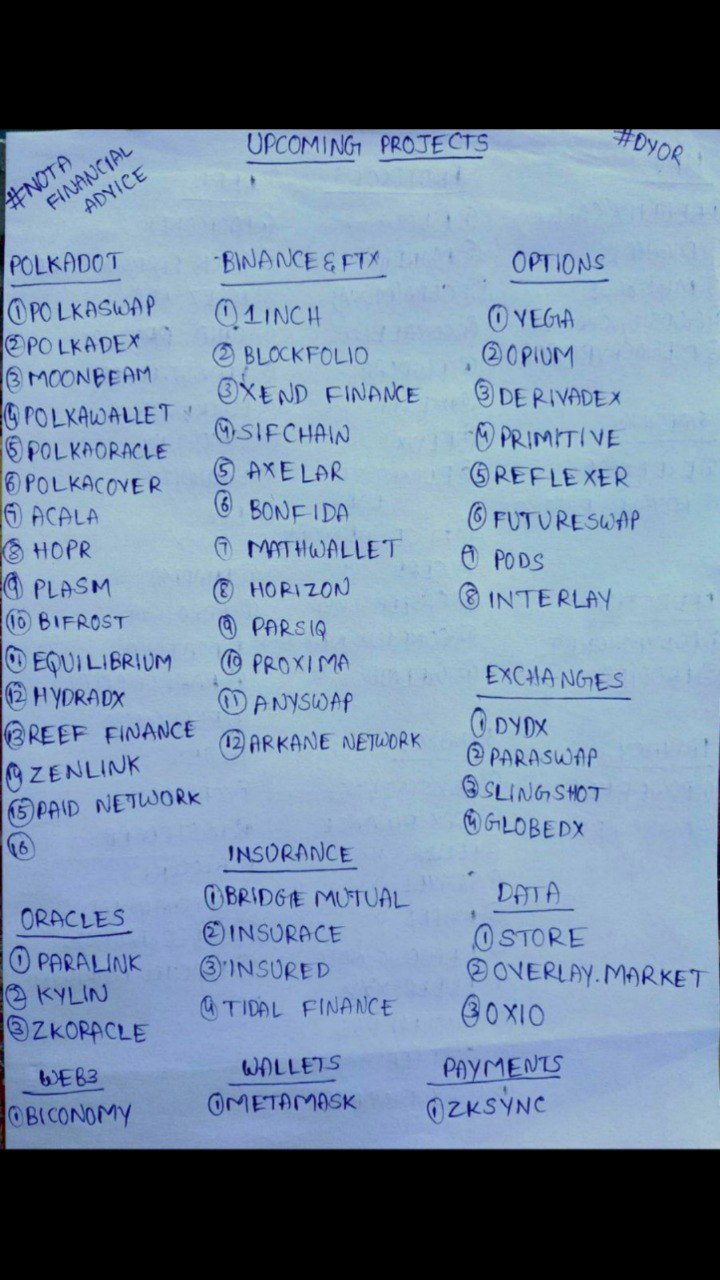 #NOT A
FINANCIAL
ADVICE
UPCOMING PROJECTS
#DYOR
POLKADOT
① POLKASWAP
② POLKADEX
③ MOONBEAM
④ POLKAWALLET
⑤ POLKAORACLE
⑥ POLKACOVER
⑦ ACALA
⑧ HOPR
⑨ PLASM
⑩ BIFROST
⑪ EQUILIBRIUM
⑫ HYDRADX
⑬ REEF FINANCE
⑭ ZENLINK
⑮ PAID NETWORK
⑯
BINANCE & FTX
① 1INCH
② BLOCKFOLIO
③ XEND FINANCE
④ SIFCHAIN
⑤ AXELAR
⑥ BONFIDA
⑦ MATHWALLET
⑧ HORIZON
⑨ PARSIQ
⑩ PROXIMA
⑪ ANYSWAP
⑫ ARKANE NETWORK
OPTIONS
① VEGA
② OPIUM
③ DERIVADEX
④ PRIMITIVE
⑤ REFLEXER
⑥ FUTURESWAP
⑦ PODS
⑧ INTERLAY
EXCHANGES
① DYDX
② PARASWAP
③ SLINGSHOT
④ GLOBEDX
INSURANCE
① BRIDGE MUTUAL
② INSURACE
③ INSURED
④ TIDAL FINANCE
DATA
① STORE
② OVERLAY.MARKET
③ OXIO
ORACLES
① PARALINK
② KYLIN
③ ZKORACLE
WEB3
① BICONOMY
WALLETS
① METAMASK
PAYMENTS
① ZKSYNC